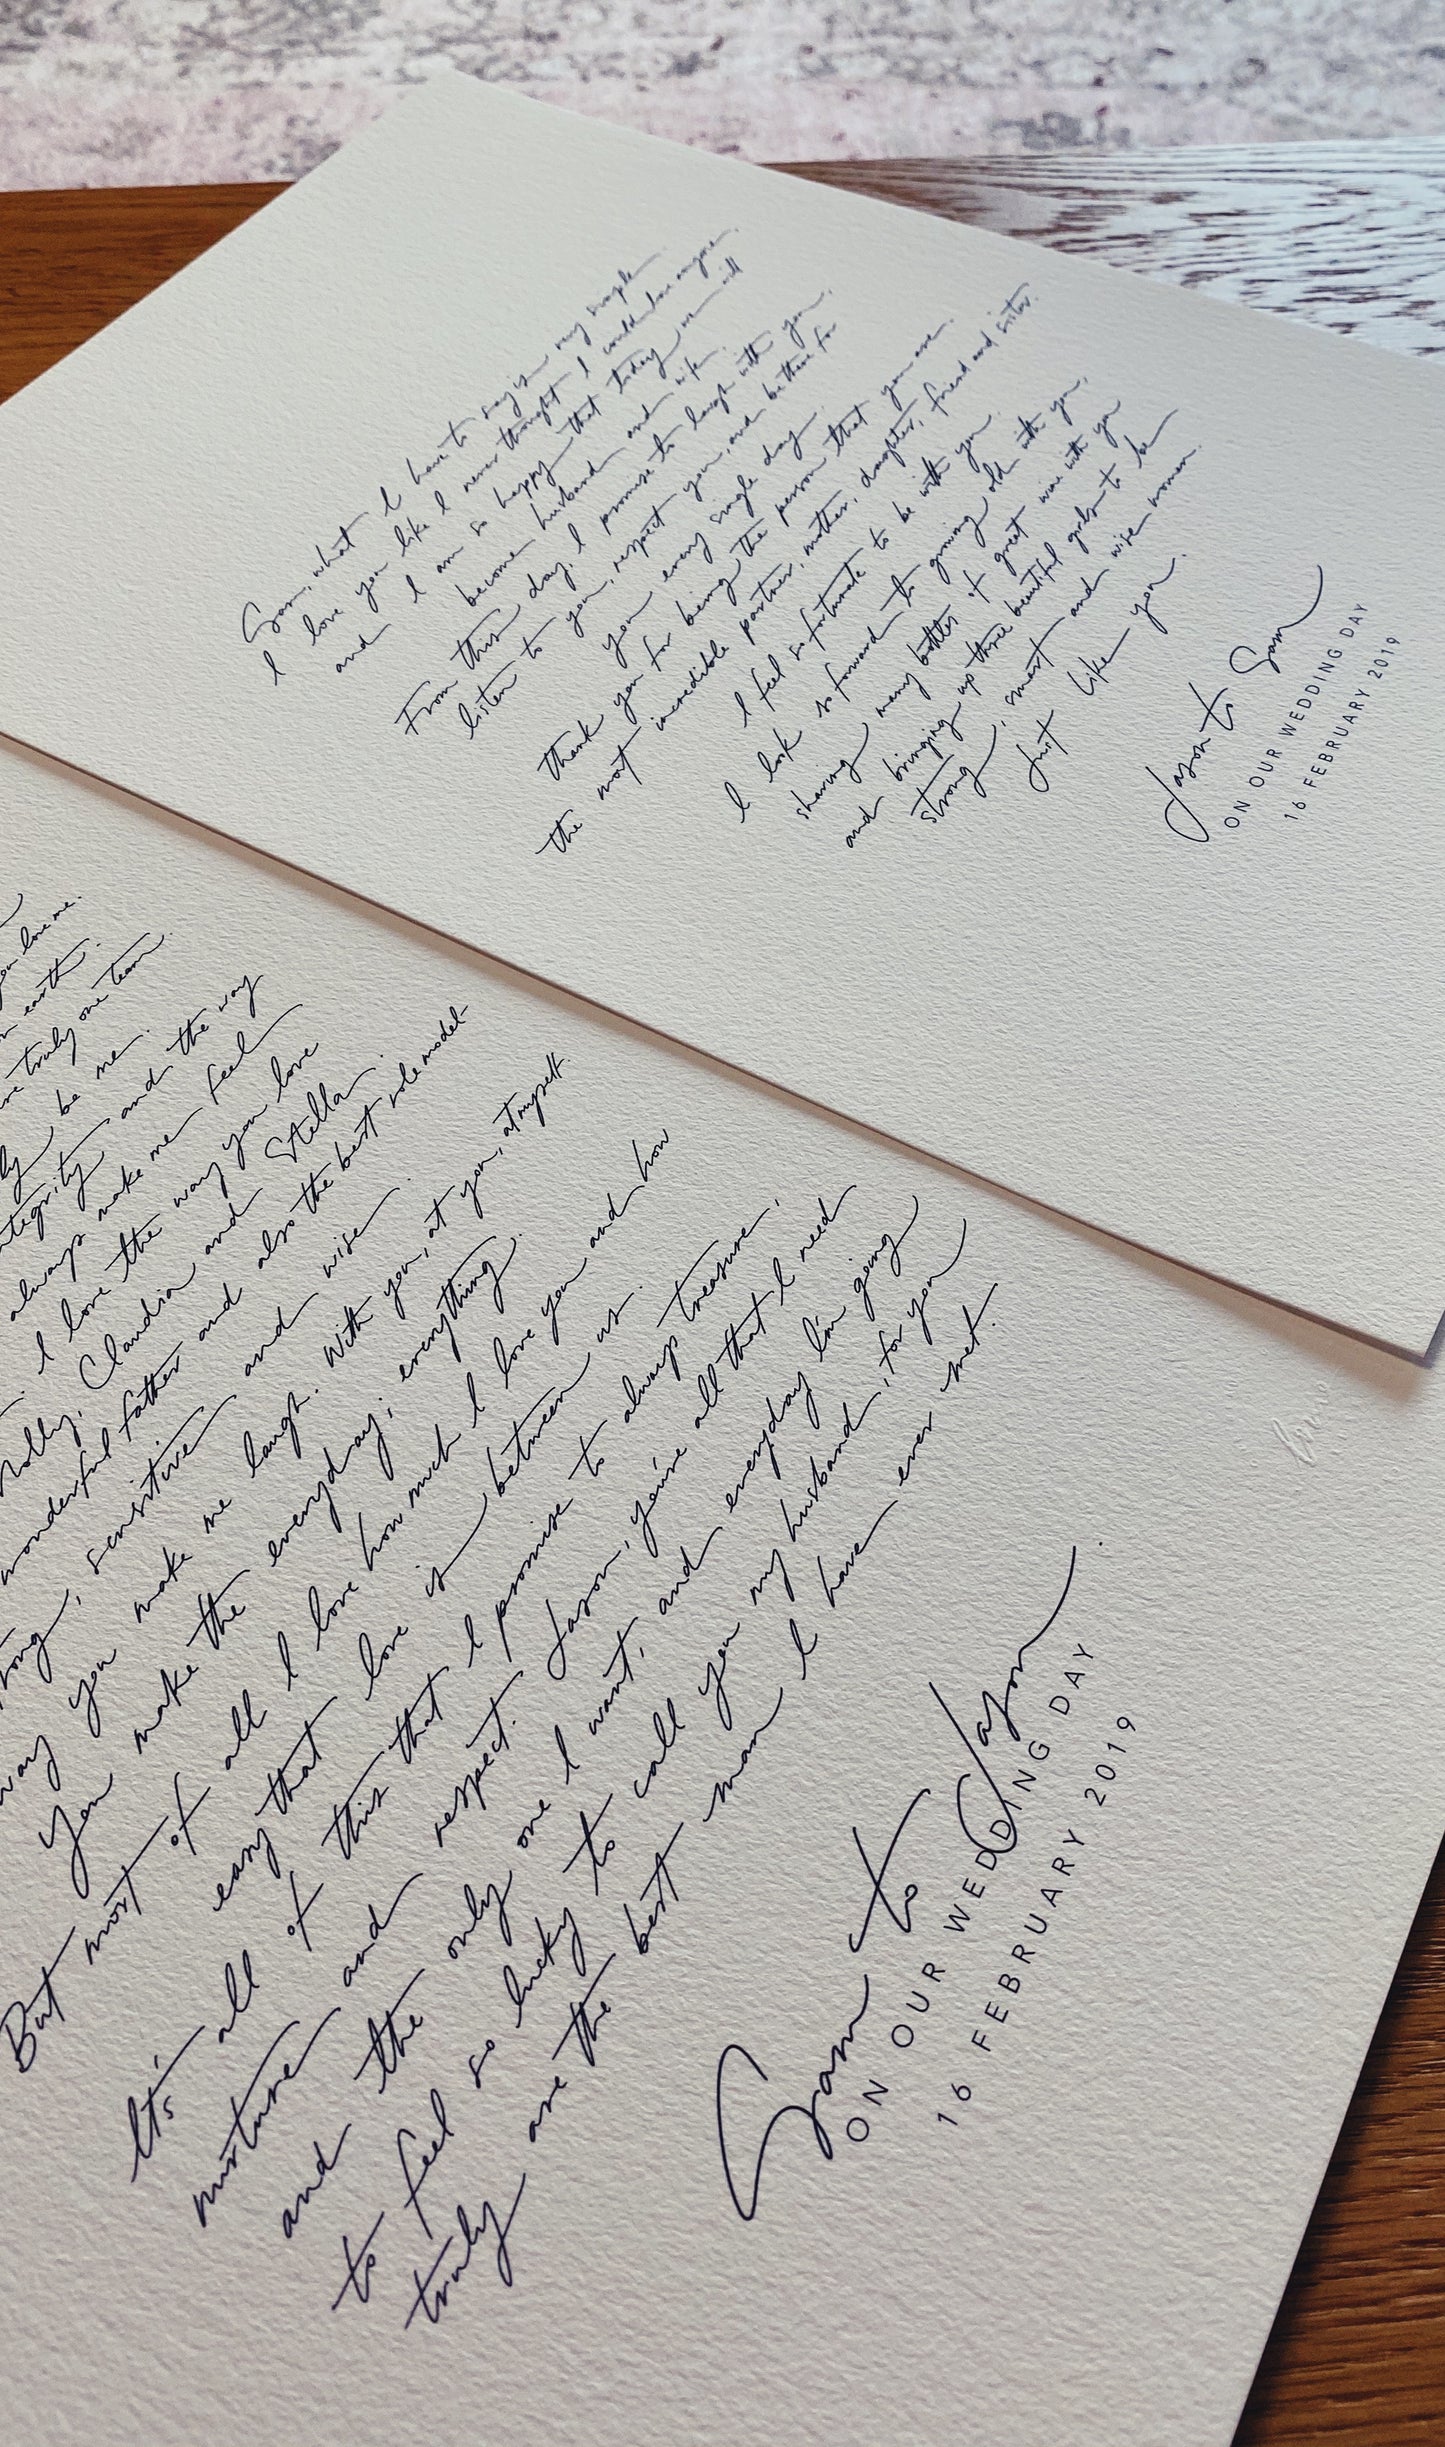 Sam, what I have to say is very simple.
I love you like I never thought I could love anyone.
and I am so happy that today we will
become husband and wife.
From this day, I promise to laugh with you,
listen to you, respect you, and be there for
you every single day.
Thank you for being the person that you are.
the most incredible partner, mother, daughter, friend and sister.
I feel so fortunate to be with you.
I look so forward to growing old with you,
sharing many bottles of great wine with you
and bringing up three beautiful girls to be
strong, smart and wise women.
Just like you.
Jason to Sam
ON OUR WEDDING DAY
16 FEBRUARY 2019
you love me.
on earth.
truly one team.
be me.
integrity and the way
always make me feel
I love the way you love
Molly, Claudia and Stella.
wonderful father and also the best role model-
strong, sensitive and wise.
way you make me laugh. With you, at you, at myself.
You make the everyday; everything.
But most of all I love how much I love you and how
easy that love is between us.
It's all of this that I promise to always treasure,
nurture and respect. Jason, you're all that I need
and the only one I want, and everyday I'm going
to feel so lucky to call you my husband, for you
truly are the best man I have ever met.
Sam to Jason
ON OUR WEDDING DAY
16 FEBRUARY 2019